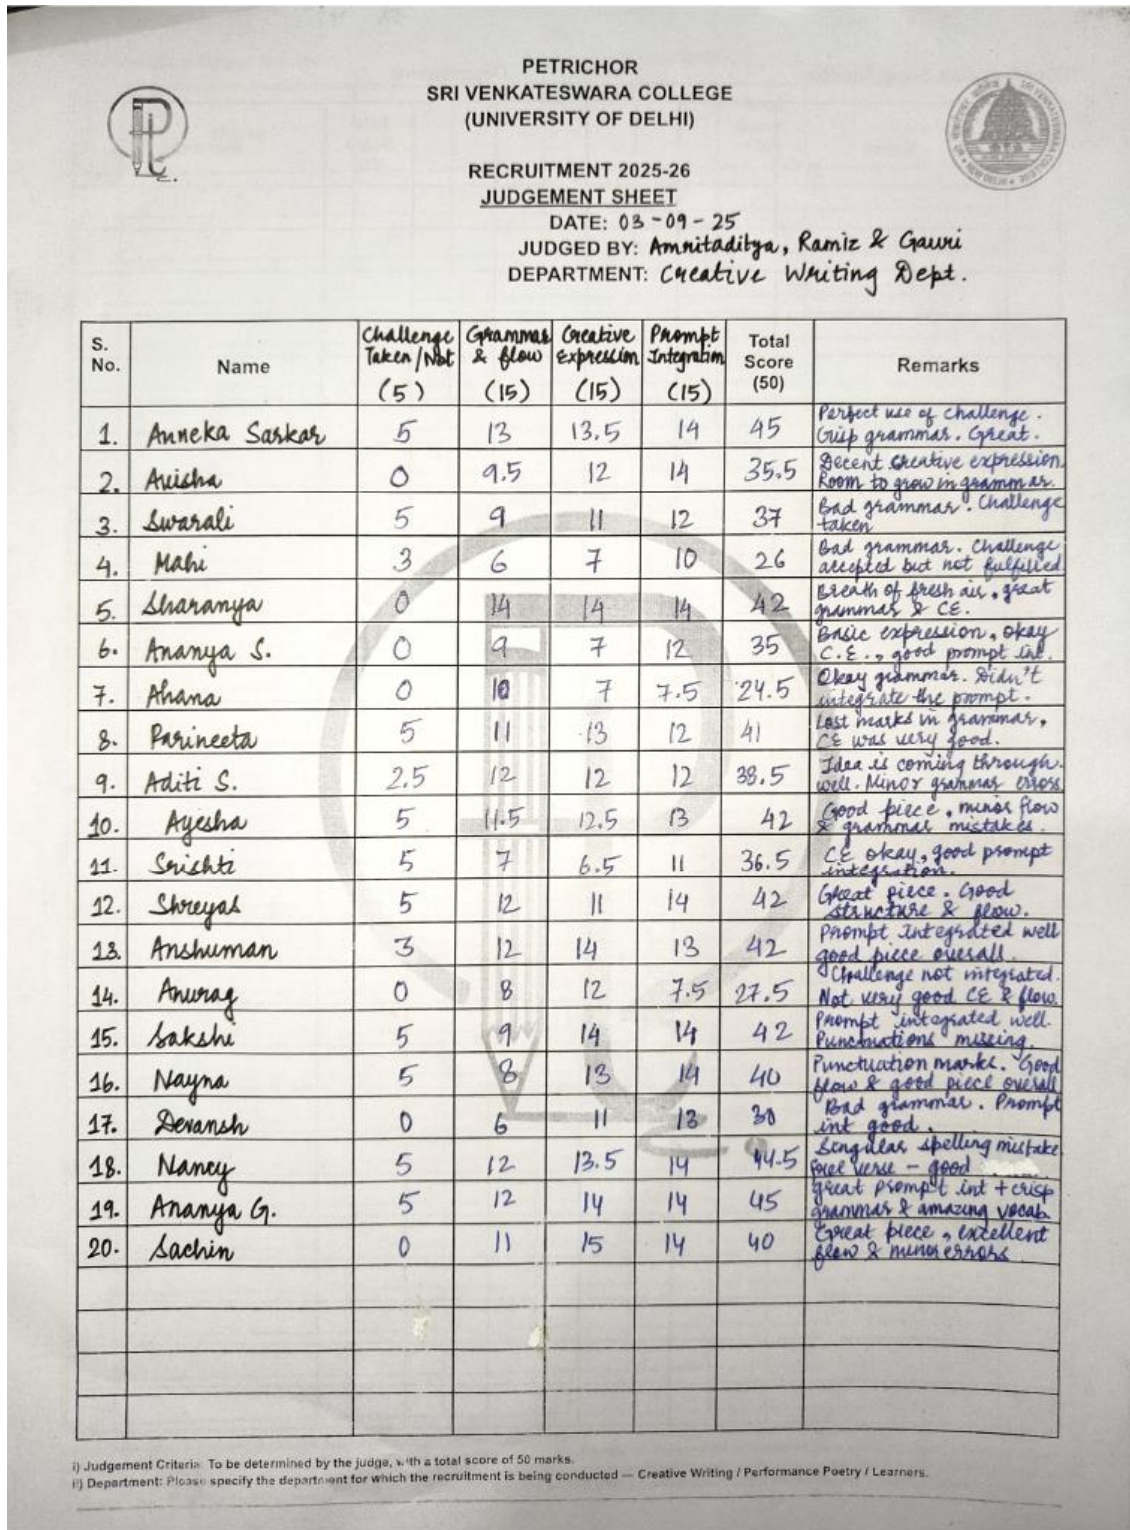 PETRICHOR
SRI VENKATESWARA COLLEGE
(UNIVERSITY OF DELHI)
RECRUITMENT 2025-26
JUDGEMENT SHEET
DATE: 03-09-25
JUDGED BY: Amritaditya, Ramiz & Gauri
DEPARTMENT: Creative Writing Dept.
S. No. Name Challenge Taken/Not (5) Grammar & flow (15) Creative Expression (15) Prompt Integration (15) Total Score (50) Remarks
1. Anneka Sarkar 5 13 13.5 14 45 Perfect use of challenge. Crisp grammar. Great.
2. Avisha 0 9.5 12 14 35.5 Decent creative expression. Room to grow in grammar.
3. Swarali 5 9 11 12 37 Bad grammar. Challenge taken
4. Mahi 3 6 7 10 26 Bad grammar. Challenge accepted but not fulfilled
5. Sharanya 0 14 14 14 42 Breath of fresh air, great grammar & CE.
6. Ananya S. 0 9 7 12 35 Basic expression, okay C.E., good prompt int.
7. Ahana 0 10 7 7.5 24.5 Okay grammar. Didn't integrate the prompt.
8. Parineeta 5 11 13 12 41 Lost marks in grammar, CE was very good.
9. Aditi S. 2.5 12 12 12 38.5 Idea is coming through well. Minor grammar errors
10. Ayesha 5 11.5 12.5 13 42 Good piece, minor flow & grammar mistakes.
11. Srishti 5 7 6.5 11 36.5 CE okay, good prompt integration.
12. Shreyas 5 12 11 14 42 Great piece. Good structure & flow.
13. Anshuman 3 12 14 13 42 Prompt integrated well good piece overall.
14. Anurag 0 8 12 7.5 27.5 Challenge not integrated. Not very good CE & flow.
15. Sakshi 5 9 14 14 42 Prompt integrated well. Puncuations missing.
16. Nayna 5 8 13 14 40 Punctuation marks. Good flow & good piece overall
17. Devansh 0 6 11 13 30 Bad grammar. Prompt int good.
18. Nancy 5 12 13.5 14 44.5 Singular spelling mistake verse – good
19. Ananya G. 5 12 14 14 45 great prompt int + crisp grammar & amazing vocab.
20. Sachin 0 11 15 14 40 Great piece, excellent flow & minor errors
i) Judgement Criteria: To be determined by the judge, with a total score of 50 marks.
ii) Department: Please specify the department for which the recruitment is being conducted — Creative Writing / Performance Poetry / Learners.